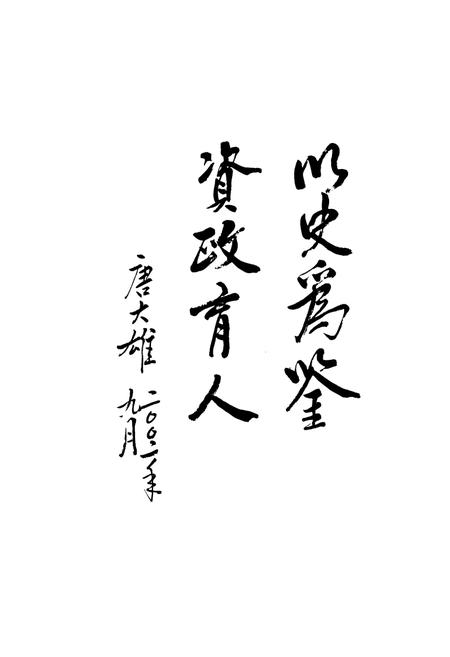 以史爲鉴
資政育人
唐大雄
二〇〇二年
九月